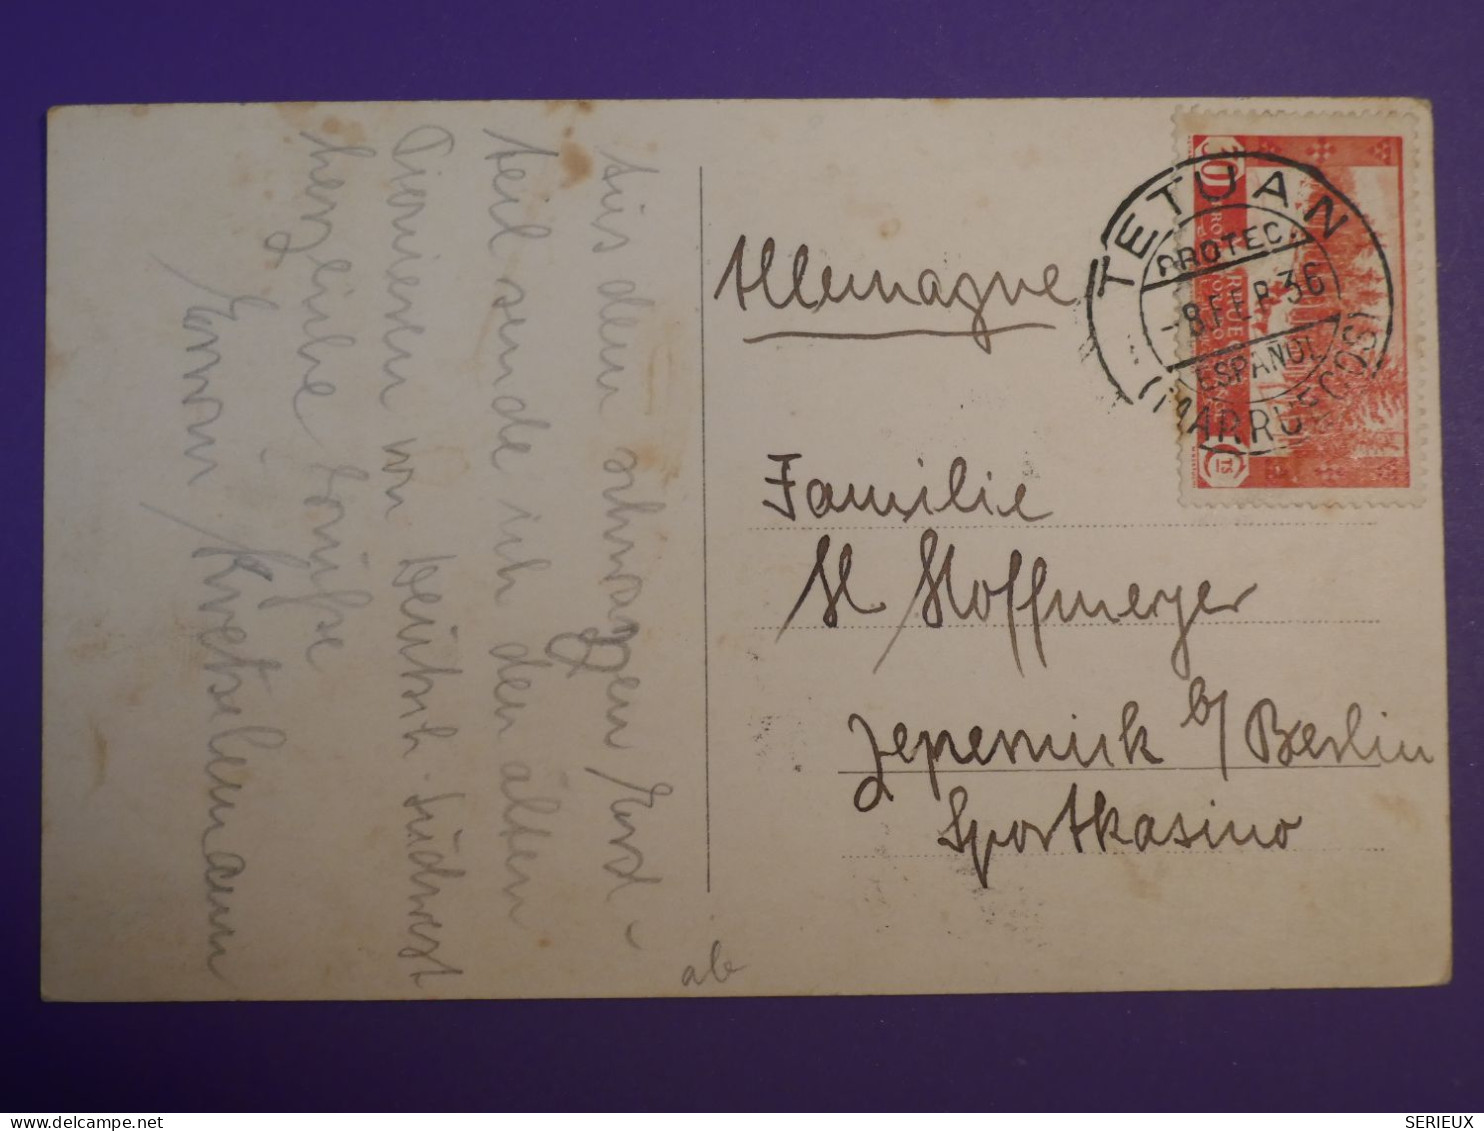 Aus dem schwarzen Erd-
teil sende ich den alten
Pionieren von Deutsch-Südwest
herzliche Grüsse
Erwin Kretselemann
Allemagne
Familie
H Hoffmeyer
Zepernick b/ Berlin
Sportkasino
TETUAN
PROTEC.
-8 FEB 36
ESPAÑOL
(MARRUECOS)
30
TS
ab
SERIEUX